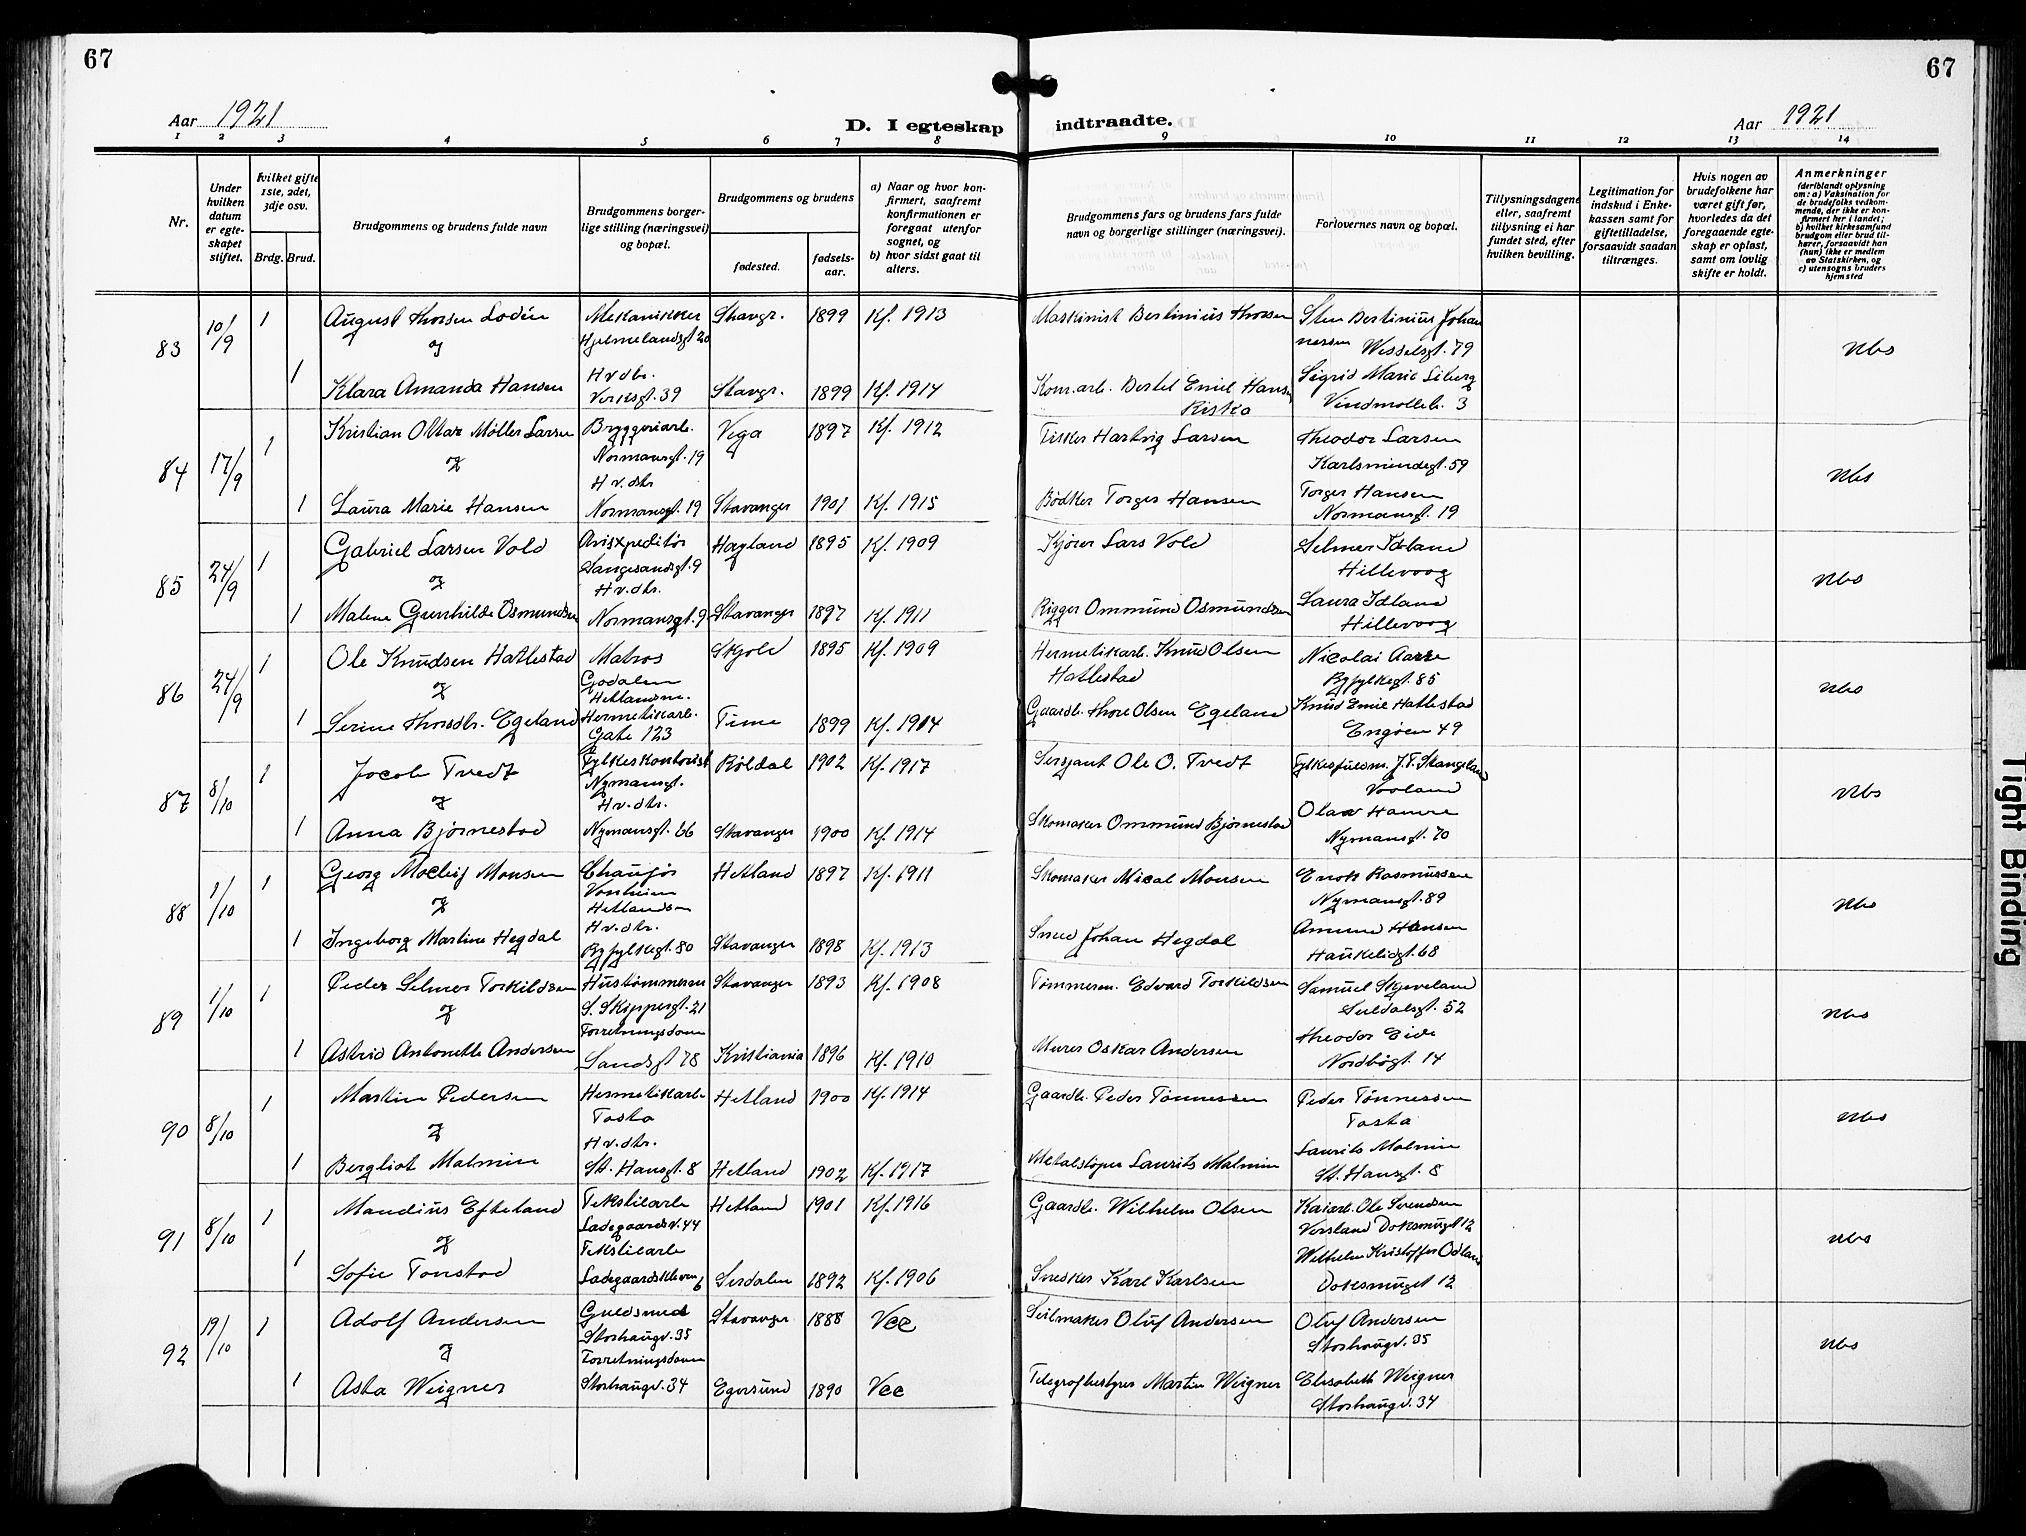 67
67
Aar 1921
D. I egteskap indtraadte.
Aar 1921
1 2 3 4 5 6 7 8 9 10 11 12 13 14
Nr.
Under hvilken datum er egte-skapet stiftet.
hvilket gifte 1ste, 2det, 3dje osv.
Brdg. Brud.
Brudgommens og brudens fulde navn
Brudgommens borger-lige stilling (næringsvei) og bopæl.
Brudgommens og brudens
fødested.
fødsels-aar.
a) Naar og hvor kon-firmert, saafremt konfirmationen er foregaat utenfor sognet, og
b) hvor sidst gaat til alters.
Brudgommens fars og brudens fars fulde navn og borgerlige stillinger (næringsvei).
Forlovernes navn og bopæl.
Tillysningsdagene eller, saafremt tillysning ei har fundet sted, efter hvilken bevilling.
Legitimation for indskud i Enke-kassen samt for giftetilladelse, forsaavidt saadan tiltrænges.
Hvis nogen av brudefolkene har været gift før, hvorledes da det foregaaende egte-skap er opløst, samt om lovlig skifte er holdt.
Anmerkninger
(deriblandt oplysning om: a) Vaksination for de brudefolks vedkom-mende, der ikke er kon-firmert her i landet; b) hvilket kirkesamfund brudgom eller brud til-hører, forsaavidt han (hun) ikke er medlem av Statskirken, og c) utensogns bruders hjemsted
83 10/9 1 August Thorsen Lodén Mekanikker Hjelmelandsgt 20 Stavgr. 1899 Kf. 1913 Maskinist Bertinius Thorsen Sten Bertinius Johannessen Wesselsgt. 79 Nbs
og
1 Klara Amanda Hansen Hv dtr. Verksgt. 39 Stavgr. 1899 Kf. 1914 Kom.arb. Bertel Emil Hansen Riska Sigrid Marie Siberg Vindmølleb. 3
84 17/9 1 Kristian Ottar Møller Larsen Bryggeriarb. Normansgt. 19 Vega 1897 Kf. 1912 Fisker Hartvig Larsen Theodor Larsen Karlsmindegt. 59 Nbs
og
1 Laura Marie Hansen Hv. dtr Normansgt. 19 Stavanger 1901 Kf. 1915 Bødker Torger Hansen Torger Hansen Normansgt. 19
85 24/9 1 Gabriel Larsen Vold Avisexpeditør Langesandsgt. 9 Høyland 1895 Kf. 1909 Kjører Lars Vold Selmer Idland Hillevaag Nbs
og
1 Malene Gunhilde Osmundsen Hv. dtr. Normansgt. 9 Stavanger 1897 Kf. 1911 Rigger Ommund Osmundsen Laura Idland Hillevaag
86 24/9 1 Ole Knudsen Hatlestad Matros Godalen Hetlandsm. Skjold 1895 Kf. 1909 Hermetikarb. Knud Olsen Hatlestad Nicolai Aarre Ryfylkegt. 85 Nbs
og
1 Serine Thorsdtr. Egeland Hermetikarb. Gate 123 Time 1899 Kf. 1914 Gaardb. Thore Olsen Egeland Knud Emil Hatlestad Engøen 49
87 8/10 1 Jacob Tvedt Fylkeskontorist Nymansgt. Røldal 1902 Kf. 1917 Sersjant Ole O. Tvedt Fylkesfuldm. J. T. Stangeland Vaaland Nbs
og
1 Anna Bjørnestad Hv. dtr. Nymansgt. 66 Stavanger 1900 Kf. 1914 Skomaker Ommund Bjørnestad Olav Hamre Nymansgt. 70
88 1/10 1 Georg Mocleif Monsen Chauffør Vonheim Hetlandsm Hetland 1897 Kf. 1911 Skomaker Mical Monsen Enok Rasmussen Nymansgt. 89 Nbs
og
1 Ingeborg Martine Hegdal Hv. dtr. Ryfylkegt. 80 Stavanger 1898 Kf. 1913 Smed Johan Hegdal Amund Hansen Haukeligt. 68
89 1/10 1 Peder Selmer Torkildsen Hustømmerm S. Skippergt. 21 Stavanger 1893 Kf. 1908 Tømmerm. Edvard Torkildsen Samuel Skjeveland Suldalsgt. 52 Nbs
og
1 Astrid Antonette Andersen Forretningsdame Sandsgt 78 Kristiania 1896 Kf. 1910 Murer Oskar Andersen Theodor Eide Nordbøgt. 14
90 8/10 1 Martin Pedersen Hermetikarb Tasta Hetland 1900 Kf. 1914 Gaardb. Peder Tønnessen Peder Tønnessen Tasta Nbs
og
1 Bergliot Malmin Hv. dtr. St. Hansgt. 8 Hetland 1902 Kf. 1917 Metalstøper Laurits Malmin Laurits Malmin St. Hansgt. 8
91 8/10 1 Mandius Efteland Tekstilarb Ladegaardsv. 44 Hetland 1901 Kf. 1916 Gaardb. Wilhelm Olsen Kaiarb. Ole Svendsen Versland Doksmuget 12 Nbs
og
1 Sofie Tonstad Tekstilarb Ladegaardskleven 6 Sirdalen 1892 Kf. 1906 Snekker Karl Karlsen Wilhelm Kristoffer Odland Doksmuget 12
92 19/10 1 Adolf Andersen Guldsmed Storhaugv. 35 Stavanger 1888 Vec Seilmaker Oluf Andersen Oluf Andersen Storhaugv. 35 Nbs
og
1 Asta Weigner Forretningsdame Storhaugv. 34 Egersund 1890 Vec Telegrafbestyrer Martin Weigner Elisabeth Weigner Storhaugv. 34
Tight Binding